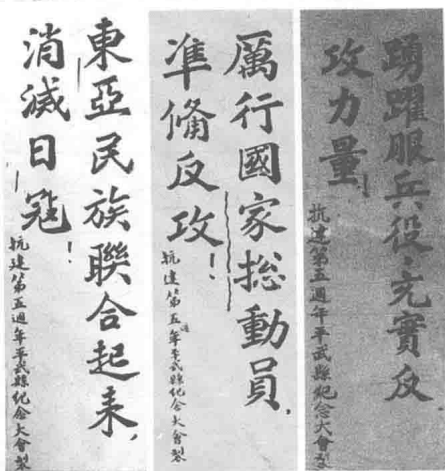 踴躍服兵役，充實反
攻力量！
抗建第五週年平武縣紀念大會製
厲行國家総動員，
準備反攻！
抗建第五週年平武縣紀念大會製
東亞民族聯合起来，
消滅日寇！
抗建第五週年平武縣紀念大會製